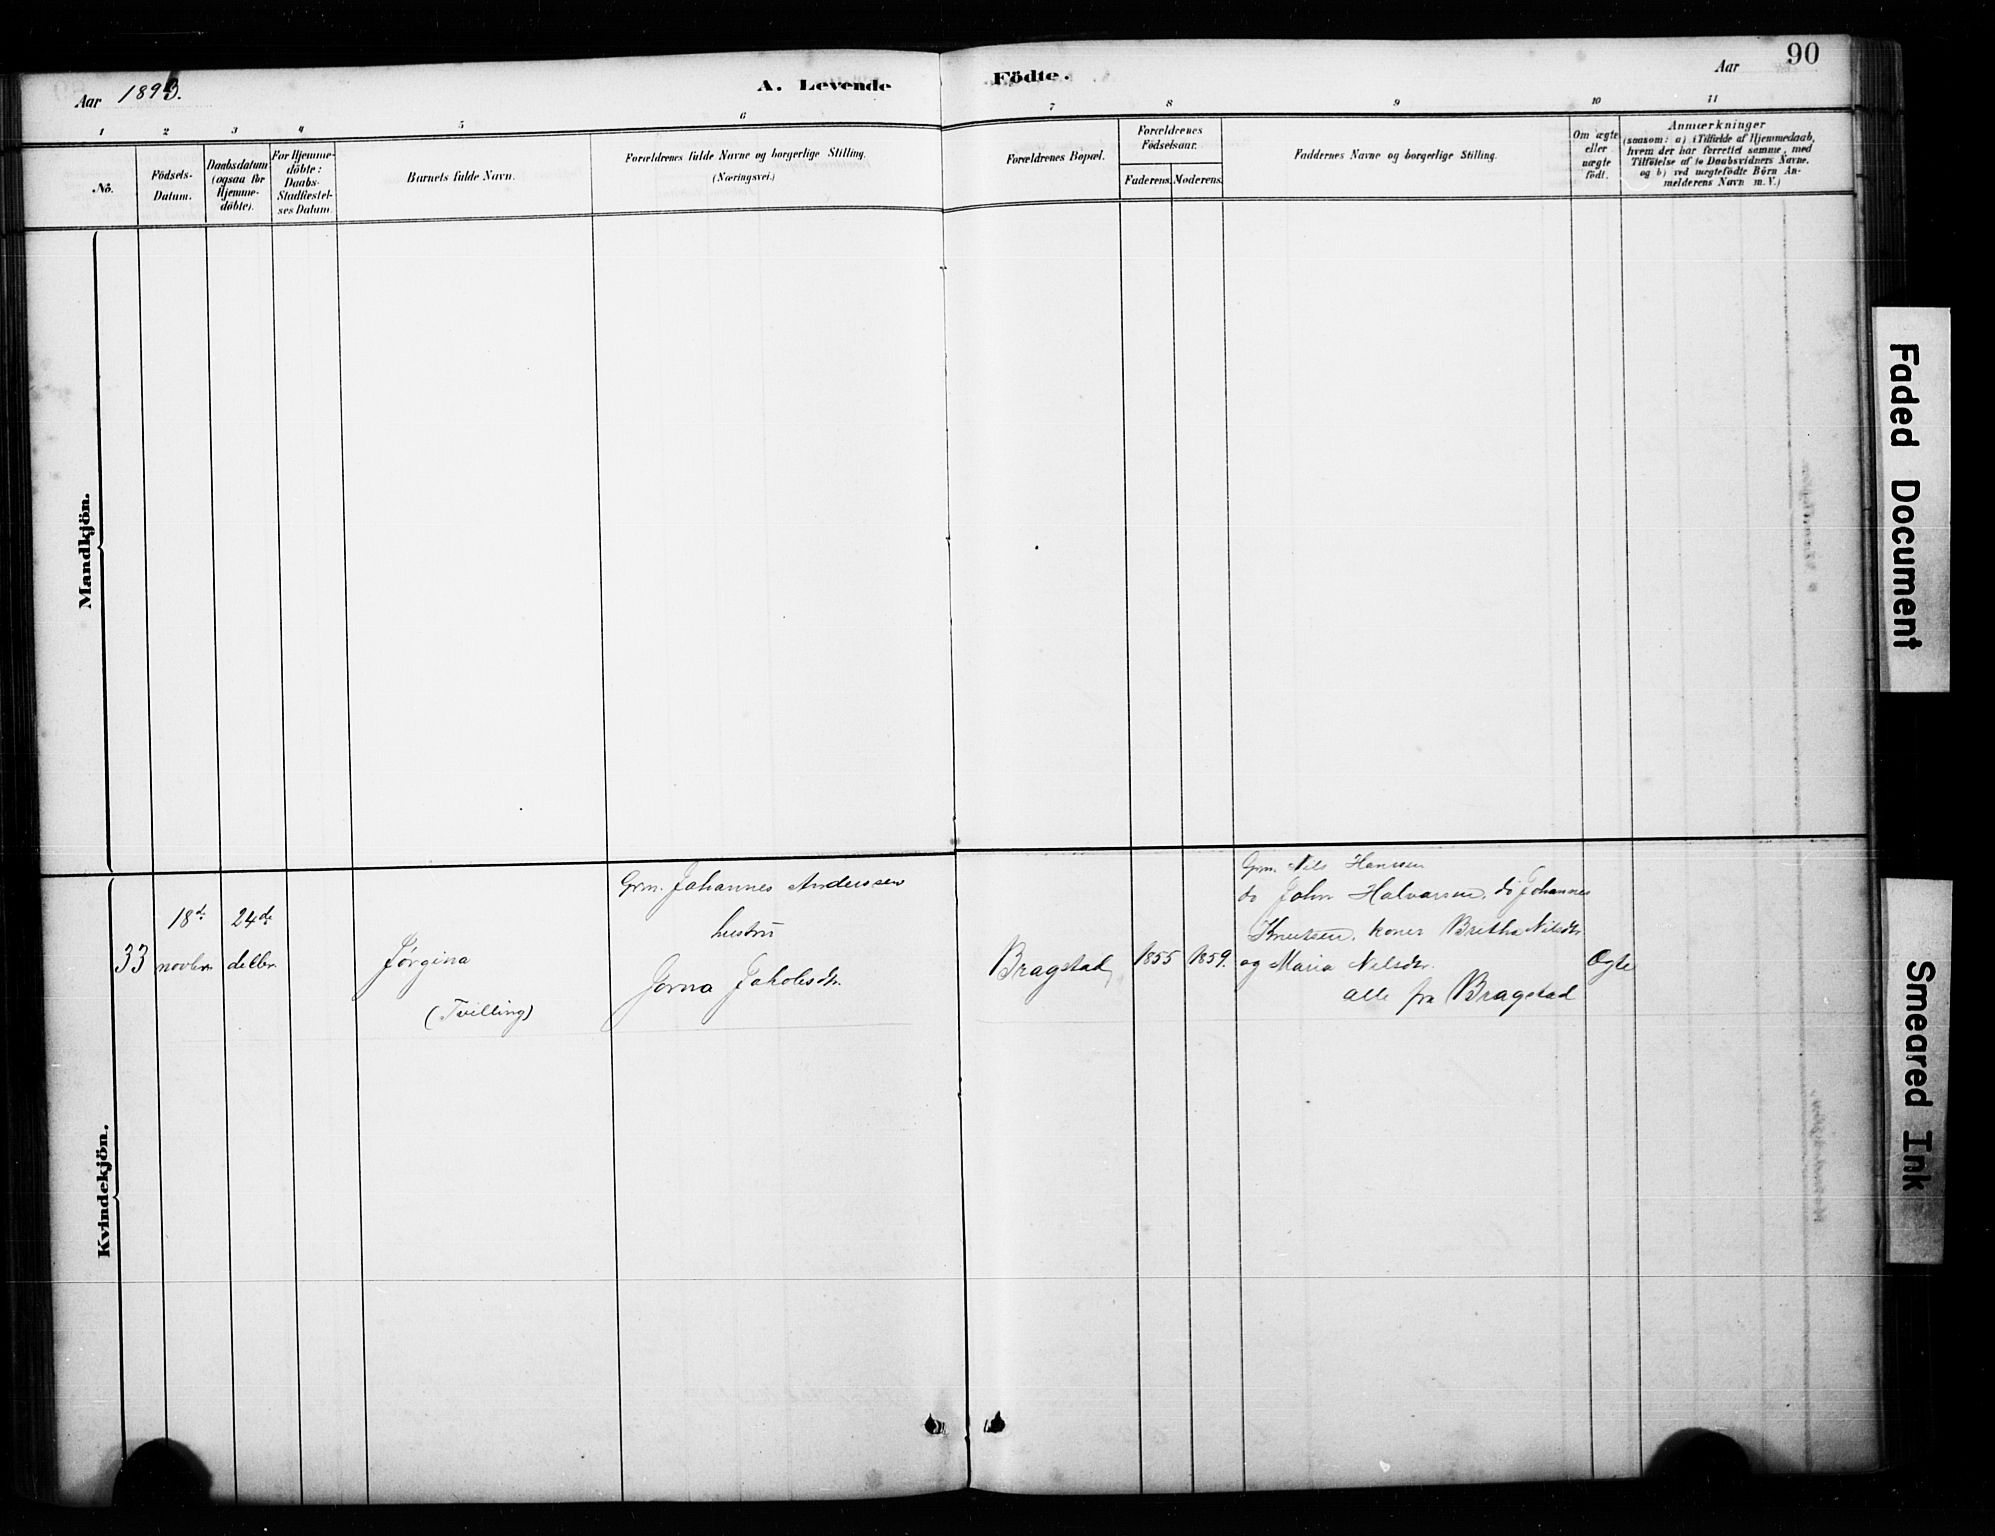 90
Aar 1893.
A. Levende Födte.
Aar
1 2 3 4 5 6 7 8 9 10 11
No.
Födsels-
Datum.
Daabsdatum
(ogsaa for
Hjemme-
döbte).
For Hjemme-
döbte:
Daabs-
Stadfæstel-
ses Datum.
Barnets fulde Navn.
Forældrenes fulde Navne og borgerlige Stilling.
(Næringsvei.)
Forældrenes Bopæl.
Forældrenes
Födselsaar.
Faderens. Moderens.
Faddernes Navne og borgerlige Stilling.
Om ægte
eller
uægte
födt.
Anmærkninger
(saasom: a) i Tilfælde af Hjemmedaab,
hvem der har forrettet samme, med
Tilföielse af to Daabsvidners Navne.
og b) ved uægtefödte Börn An-
melderens Navn m. V.)
Mandkjön.
Kvindekjön.
33
18de
novbr.
24de
decbr.
Jørgina
(Tvilling)
Grm. Johannes Anderssen
hustru
Gorna Jakobsdtr.
Bragstad
1855
1859.
Grm. Nils Hanssen
do John Halvarsen, do Johannes
Knutsen, koner Bretha Nilsdtr.
og Maria Nilsdtr.
alle fra Bragstad
Ægte
Faded Document
Smeared Ink